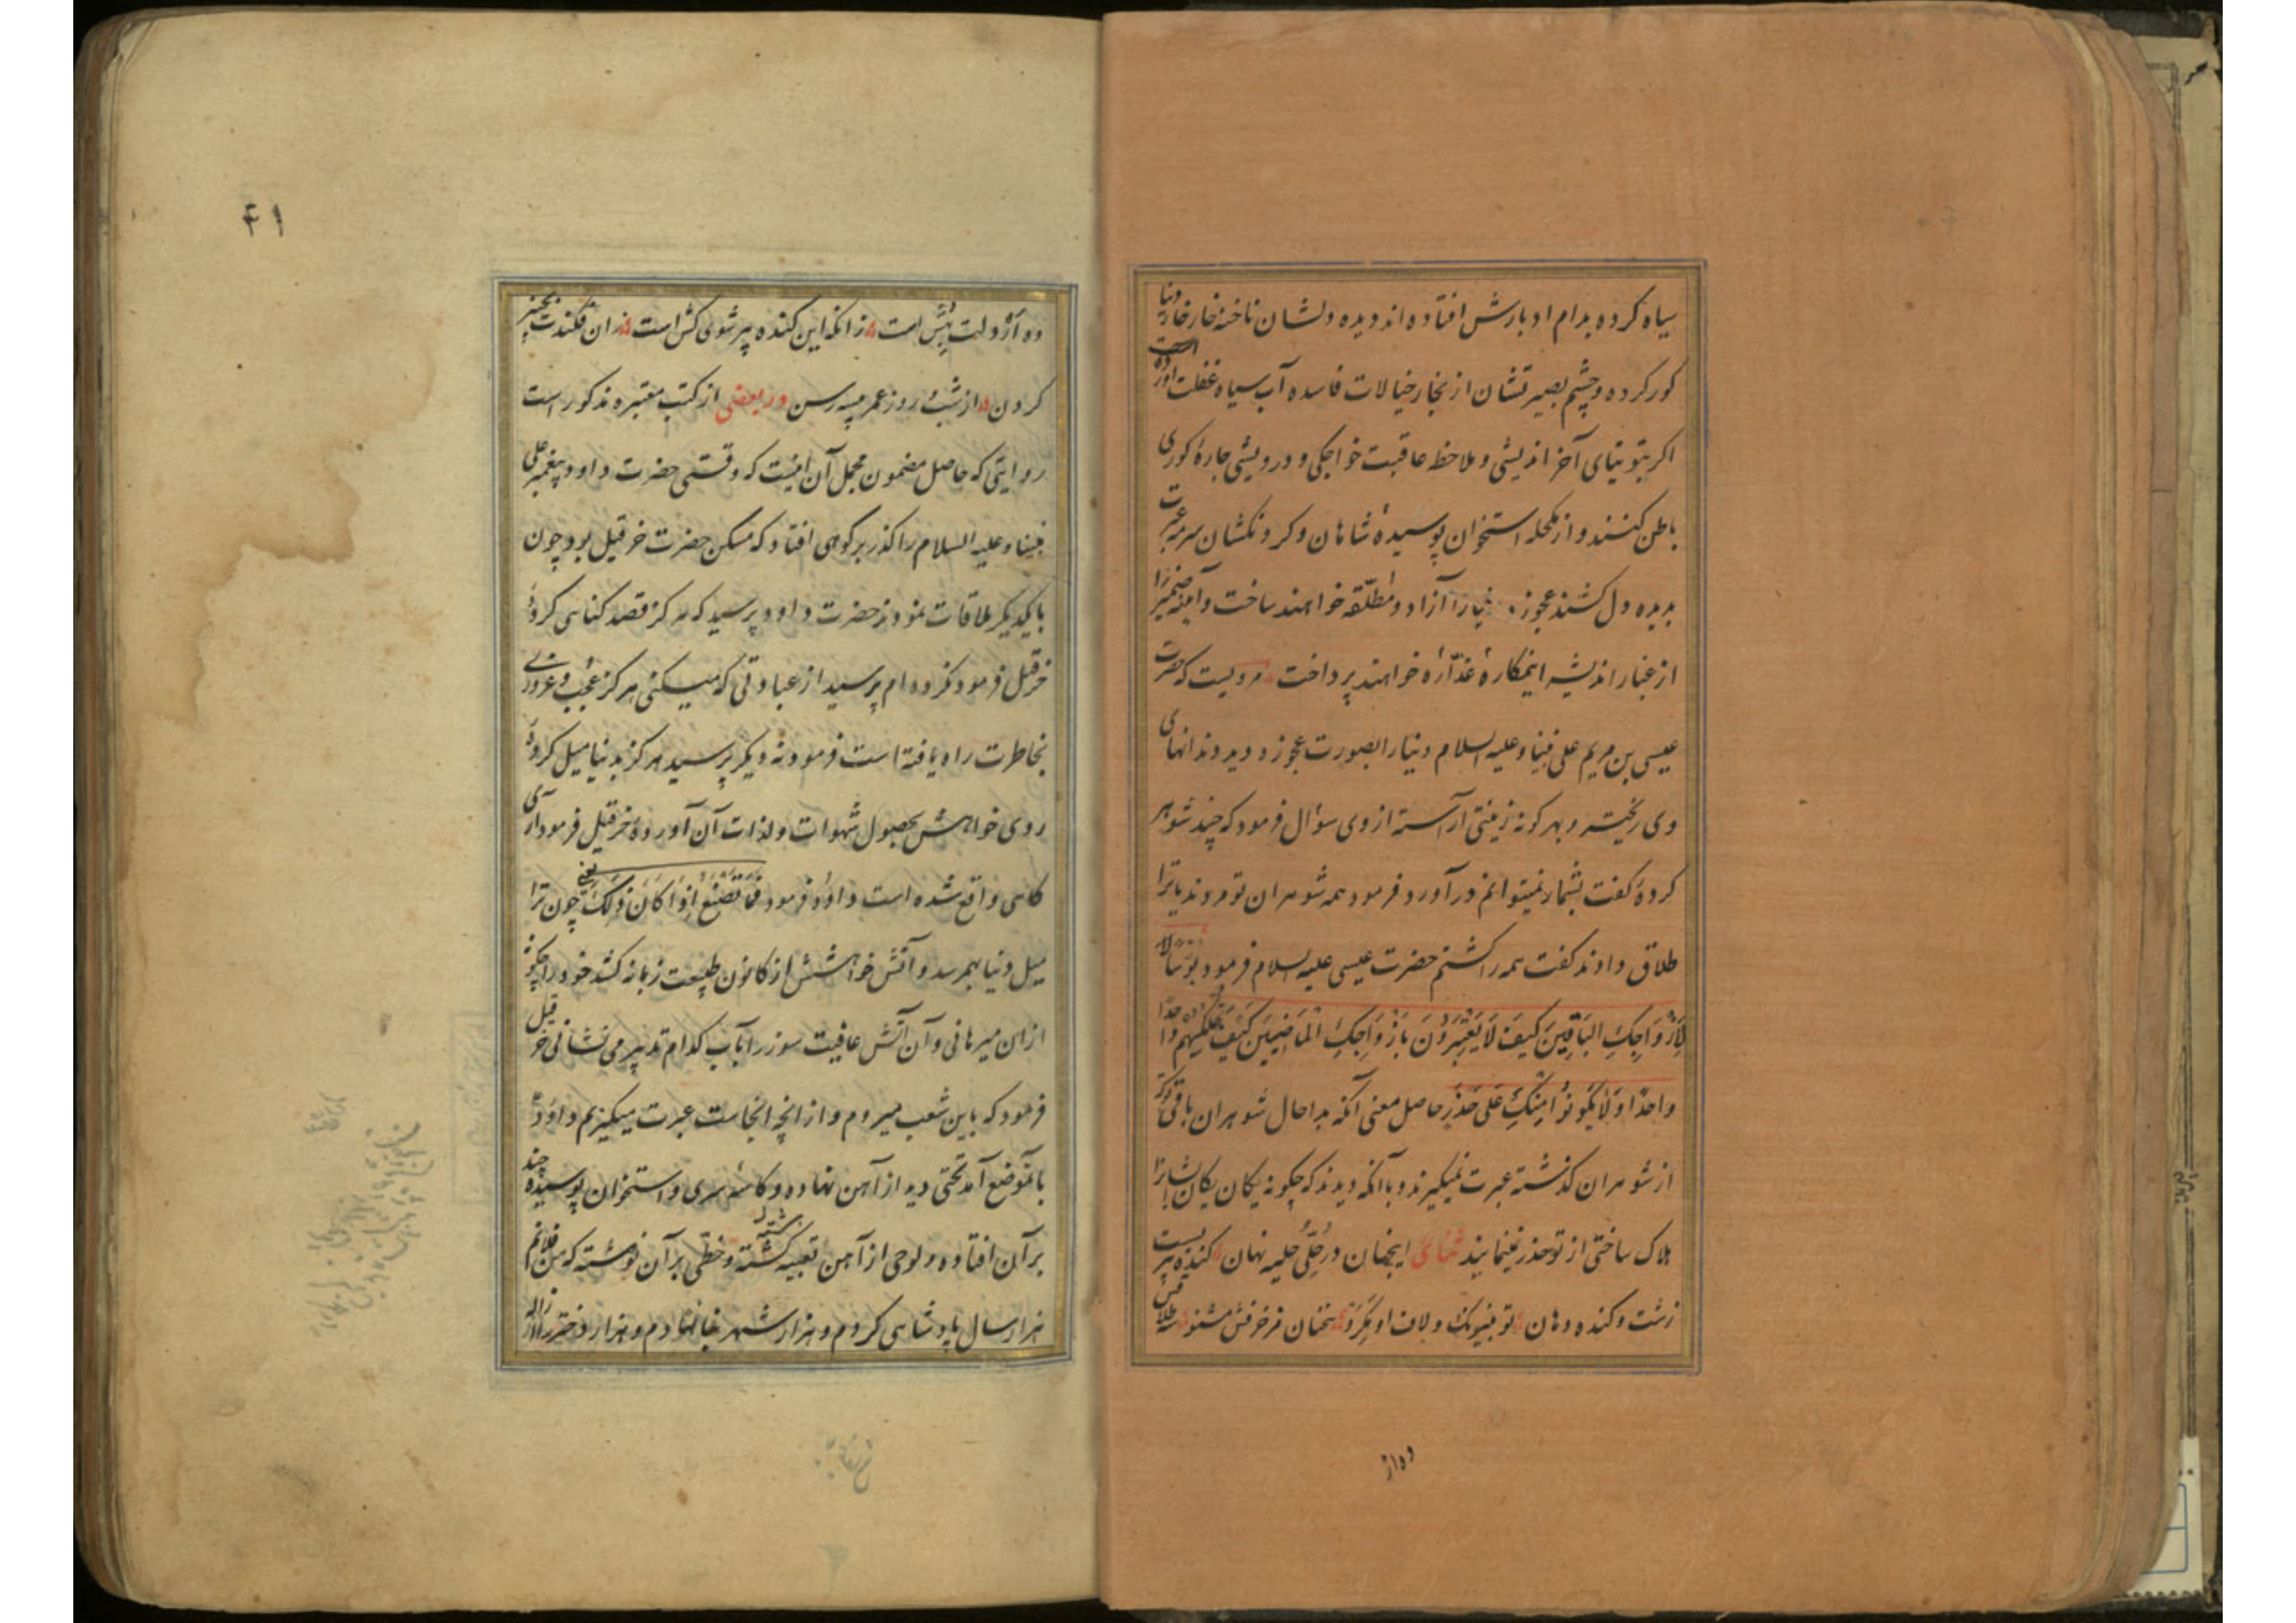 سیاه کرده بدام ادبارش افتاده اند و دیده دلشان ناخنه خارخار دنیا
کور کرده و چشم بصیرتشان از بخار خیالات فاسده آب سیاه غفلت آورده است
اکر بتوتیای آخر اندیشی و ملاحظه عاقبت خواجکی و درویشی چارهٔ کوری
باطن کنند و از مکحله استخوان پوسیدهٔ شاهان و کردنکشان سرمه عبرت
بدیده دل کشند عجوزه دنیا را آزاد و مطلّقه خواهند ساخت و آینه ضمیر را
از غبار اندیشه اینمکارهٔ غدّاره خواهند پرداخت مرویست که حضرت
عیسی بن مریم علی نبینا و علیه السلام دنیا را بصورت عجوزه دید دندانهای
وی ریخته و بهر کونه زینتی آراسته از وی سؤال فرمود که چند شوهر
کردهٔ کفت بشمار نمیتوانم در آورد فرمود همه شوهران تو مردند یا ترا
طلاق دادند کفت همه را کشتم حضرت عیسی علیه السلام فرمود بؤسا
لِاَزْوَاجِكِ البَاقِینَ کَیفَ لَا یَعْتَبِرُونَ بِاَزْوَاجِكِ الْمَاضِیینَ کَیفَ تُهْلِکِیهِم واحدا
واحدًا وَلَا یَکُونُوا مِنْكِ عَلی حَذَرٍ حاصل معنی آنکه بدا حال شوهران باقی تو که
از شوهران کذشته عبرت نمیکیرند و با آنکه دیدند که چکونه یکان یکان ایشانرا
هلاک ساختی از تو حذر نمینمایند ثنائی اینجهان در حُلّی حلیه نهان کنده پیریست
زشت و کنده دهان تو بنیرنک و لاف او مکرو سخنان مزخرفش مشنو سه طلاقش
ده از
۴۱
ده از دولت بهش است زانکه این کنده پیر شوی کش است زان فکندت بچنبر
کردن از شب و روز عمر پیسه رسن در بعضی از کتب معتبره مذکور است
روایتی که حاصل مضمون مجمل آن اینست که وقتی حضرت داود پیغمبر علی
نبینا و علیه السلام را کذر بر کوهی افتاد که مسکن حضرت خرقیل بود چون
با یکدیکر ملاقات نمودند حضرت داود پرسید که هرکز قصد کناهی کردهٔ
خرقیل فرمود نکرده ام پرسید از عبادتی که میکنی هرکز عجب و غروری
بخاطرت راه یافته است فرمود نه دیکر پرسید هرکز بدنیا میل کردهٔ
روی خواهش بحصول شهوات و لذات آن آوردهٔ خرقیل فرمود آری
کاهی واقع شده است داود فرمود فَمَا تَصْنَعُ اِذَا کَانَ ذَلِكَ یعنی چون ترا
میل دنیا بهمرسد و آتش خواهشش از کانون طبیعت زبانه کشد خود را چکونه
ازان میرهانی و آن آتش عافیت سوز را بآب کدام تدبیر می نشانی خرقیل
فرمود که باین شعب میروم و از انچه انجاست عبرت میکیرم داود
بآنموضع آمد تختی دید از آهن نهاده و کاسهٔ سری و استخوان پوسیده چند
بر آن افتاده و لوحی از آهن تعبیه کشته و خطّی بر آن نوشته که من فلانم
هزار سال پادشاهی کردم و هزار شهر بنا نهادم و هزار دختر را ازاله